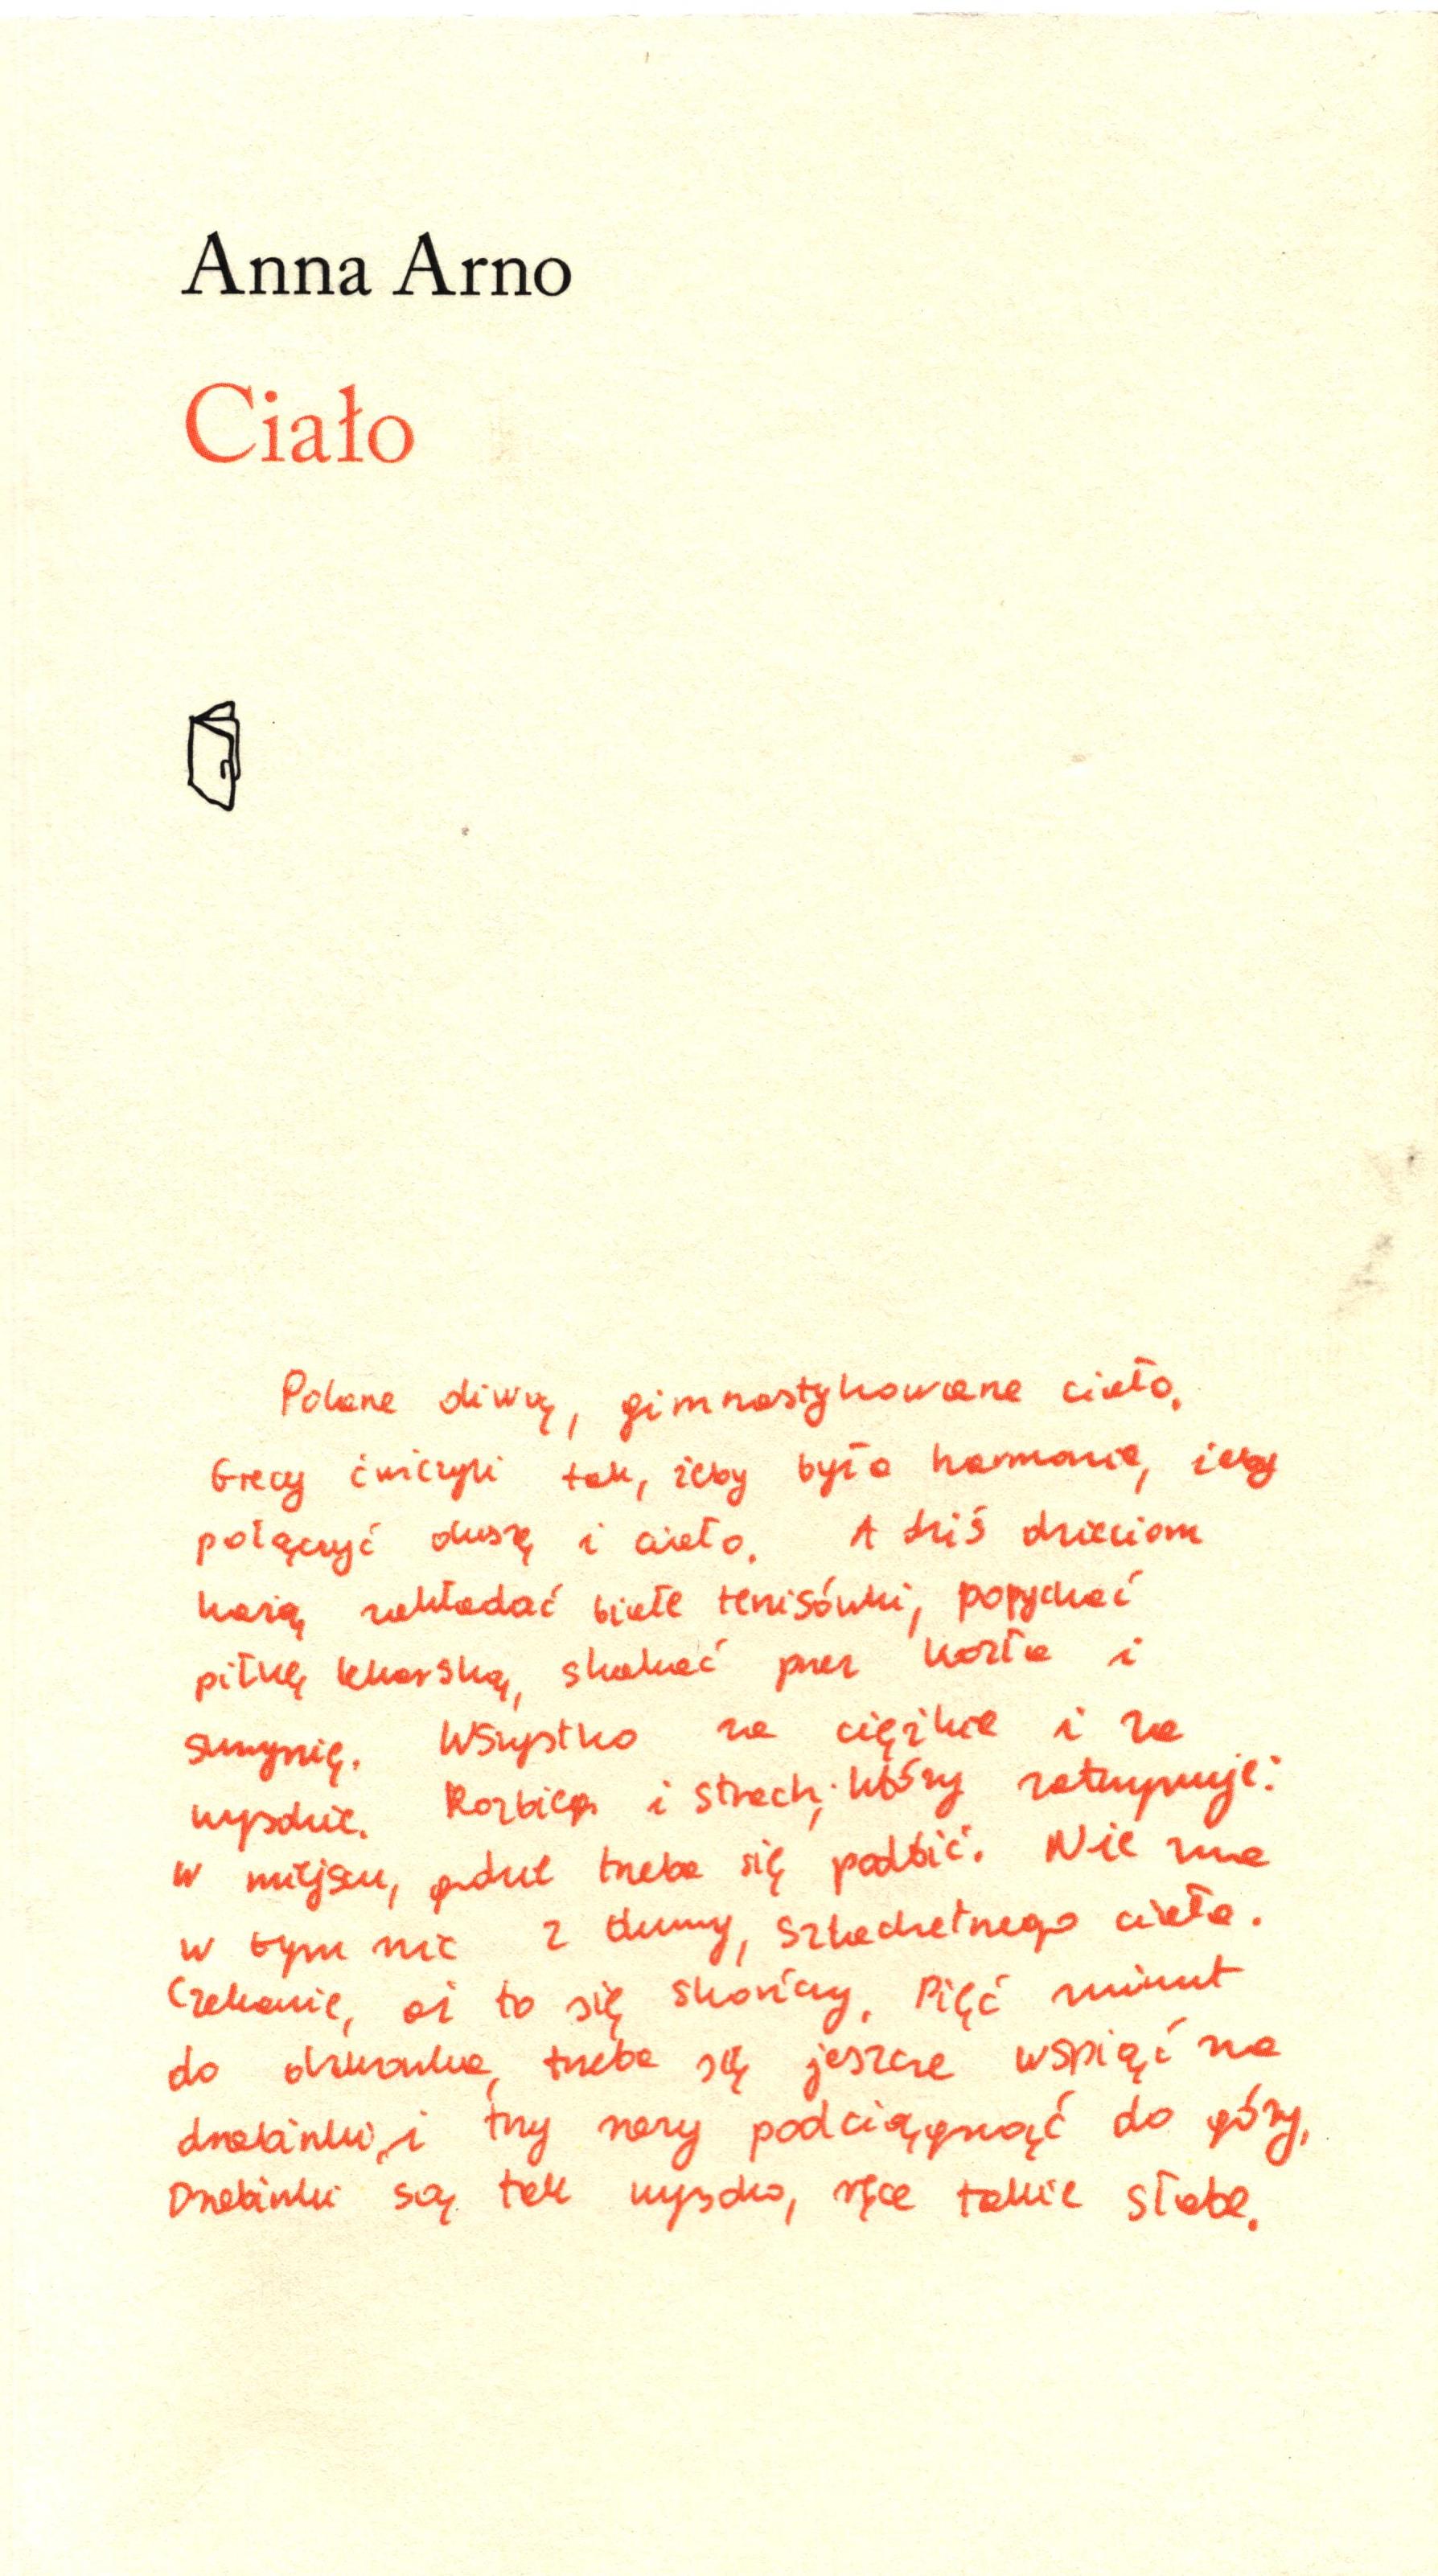 Anna Arno
Ciało
Polane oliwą, gimnastykowane ciało.
Grecy ćwiczyli tak, żeby była harmonia, żeby
połączyć duszę i ciało. A dziś dzieciom
każą zakładać białe tenisówki, popychać
piłkę lekarską, skakać przez kozła i
skrzynię. Wszystko za ciężkie i za
wysokie. Rozbieg i strach, który zatrzymuje
w miejscu, gdzie trzeba się podbić. Nie ma
w tym nic z dumy, szlachetnego ciała.
Czekanie, aż to się skończy. Pięć minut
do dzwonka, trzeba się jeszcze wspiąć na
drabinki, i trzy razy podciągnąć do góry.
Drabinki są tak wysoko, ręce takie słabe.